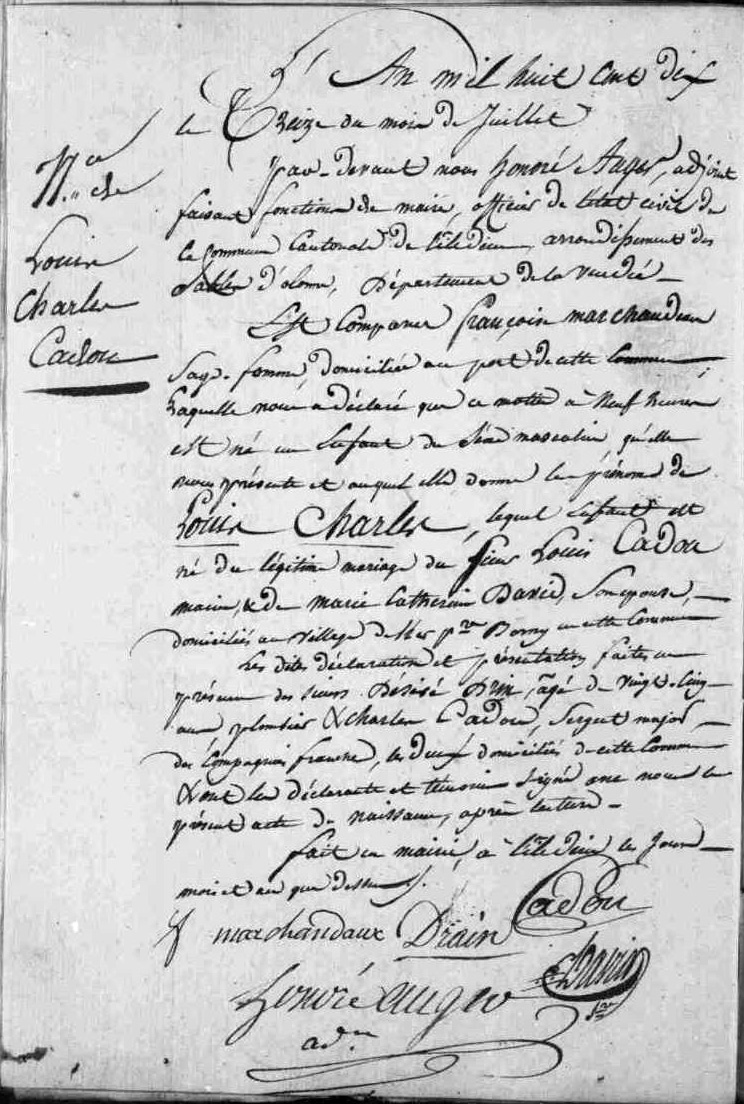 N.ce de
Louis
Charles
Cadou
L'An mil huit cent dix
le Treize du mois de Juillet
par-devant nous honoré Auger, adjoint
faisant fonctions de maire, officier de l'état civil de
la commune Cantonale de l'iledieu, arrondissement des
Sables d'olonne, Département de la Vendée —
Est Comparue françoise marchandeau
Sage-femme, domiciliée au port de cette Commune
Laquelle nous a déclaré que ce matin à Neuf heures
est né un Enfant du Sexe masculin, qu'elle
nous présente et auquel elle donne les prénoms de
Louis Charles, lequel Enfant est
né du légitime mariage du sieur Louis Cadou
marin, & de marie Catherine David, Son epouse, —
domiciliés au village de en cette Commune
Les dites déclaration et présentation faites en
présence des sieurs Désiré Drin, âgé de vingt-cinq
ans, plombier & charles Cadou, Sergent major, —
des Compagnies franches, les deux domiciliés de cette Commune
& ont les déclarante et témoins Signé avec nous le
présent acte de naissance, après lecture —
fait en mairie, à l'iledieu les Jour —
mois et an que dessus
f marchandaux Drain Cadou
honoré auger
ad.